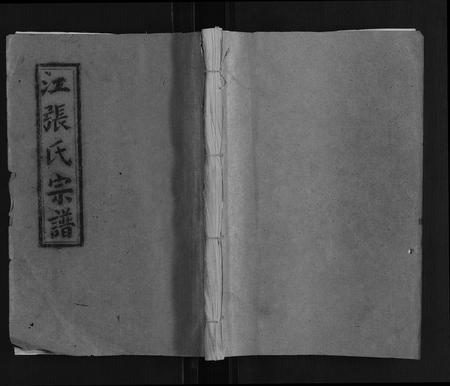 江張氏宗譜